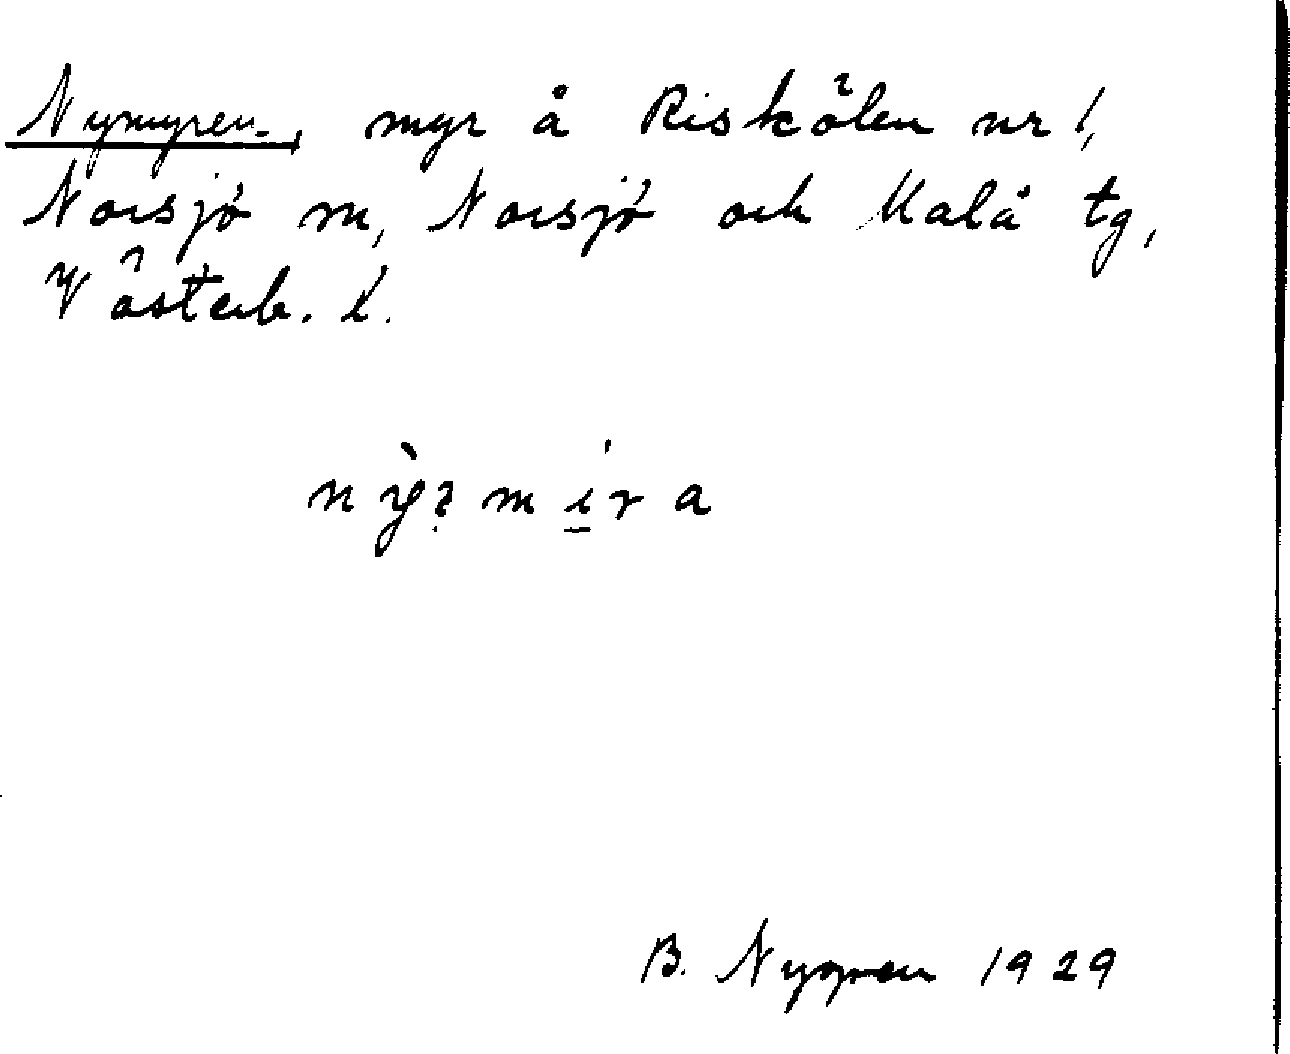 Nymyren, myr å Riskölen nr 1,
Norsjö sn, Norsjö och Malå tg,
Västerb. l.
B. Nygren 1929